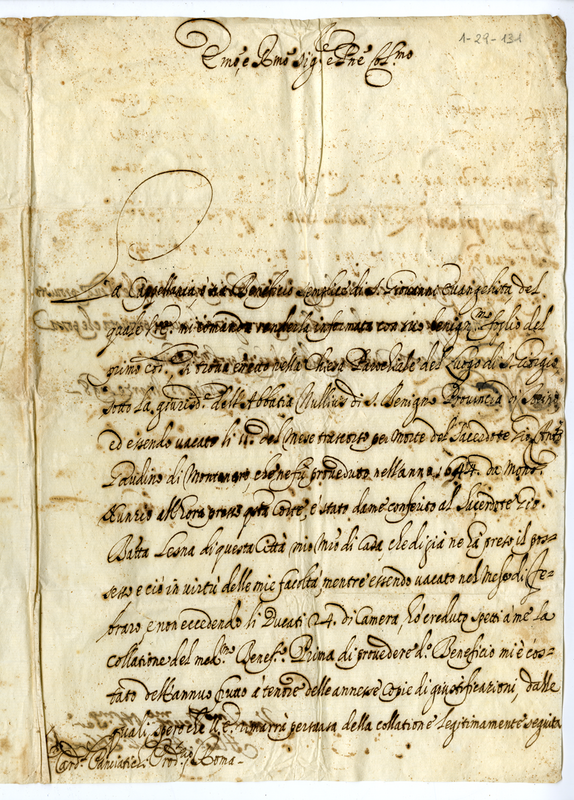 1-29-131
Em̃o, e Rm̃o Sig.re e Pñe Col.mo
La Cappellania, o sia Beneficio semplice di S. Giovanni Evangelista del
quale V.E. mi comanda renderla informata con suo benign.mo foglio del
primo cor.te si trova eretto nella Chiesa Parochiale del Luogo di S. Giorgio
sotto la giurisd.e dell'Abbatia Nullius di S. Benigno Provincia di
ed essendo vacato li 11. del Mese trascorso per morte del Sacerdote Gio.
di Montenaro, che ne fù proveduto nell'anno 1644. da Mons.r
Nunzio all'hora presso q.ta Corte, è stato da me conferito al Sacerdote Gio.
Batta Lesna di questa Città mio di Casa che di già ne hà preso il pos-
sesso e ciò in virtù delle mie facoltà, mentre essendo vacato nel Mese di Fe-
braro, e non eccedendo li Ducati 24. di Camera, hò creduto spetti à me la
collatione del med.mo Benef.o Prima di provedere d.o Beneficio mi è cos-
tato dell'annuo à tenore delle annesse Copie di giustificazioni, dalle
quali, spero che V.E. rimarrà persuasa della collatione legitimamente seguita
Card. Panciatici Prod.rio Roma-